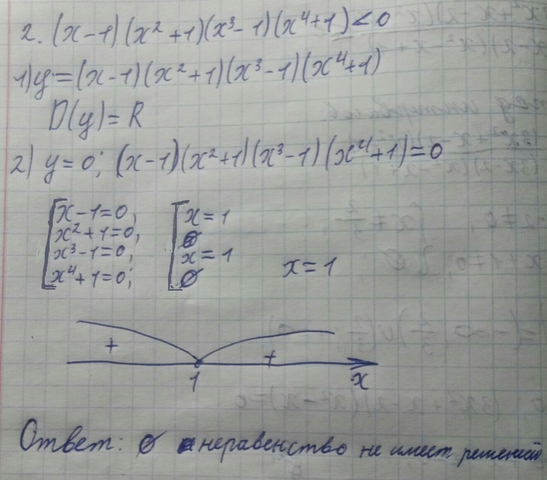 2. (x-1)(x²+1)(x³-1)(x⁴+1)<0
1) y=(x-1)(x²+1)(x³-1)(x⁴+1)
D(y)=R
2) y=0; (x-1)(x²+1)(x³-1)(x⁴+1)=0
[x-1=0, [x=1
x²+1=0, ∅
x³-1=0, x=1
x⁴+1=0; ∅ x=1
+ +
1 x
Ответ: ∅ неравенство не имеет решений